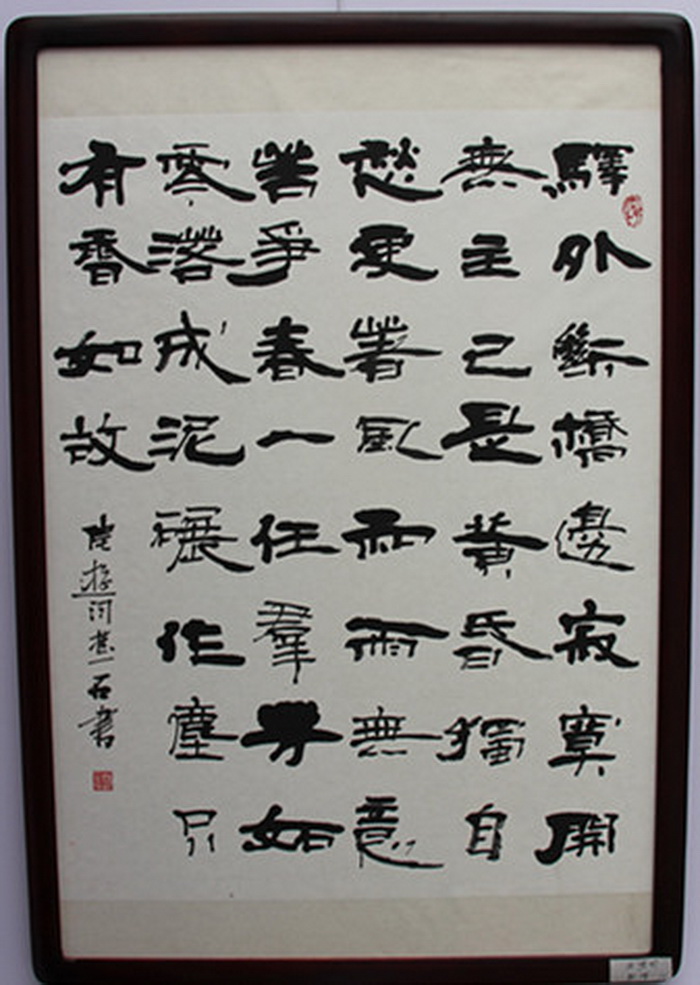 驛外斷橋邊寂寞開
無主已是黃昏獨自
愁更著風和雨無意
苦爭春一任羣芳妬
零落成泥碾作塵只
有香如故
陸游词一石書